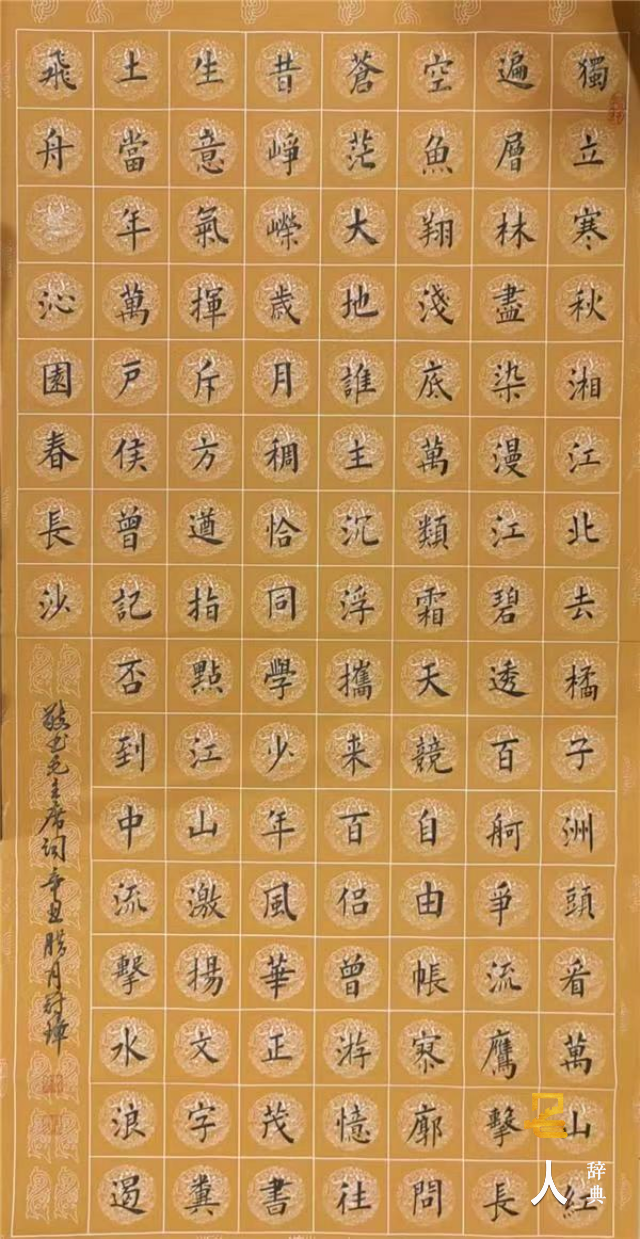 獨立寒秋湘江北去橘子洲頭看萬山紅
遍層林盡染漫江碧透百舸爭流鷹擊長
空魚翔淺底萬類霜天競自由帳寥廓問
蒼茫大地誰主沉浮攜来百侣曾游憶往
昔崢嶸歲月稠恰同學少年風華正茂書
生意氣揮斥方遒指點江山激揚文字糞
土當年萬戶侯曾記否到中流擊水浪遏
飛舟 沁園春長沙
敬书毛主席词辛丑腊月
人辞典